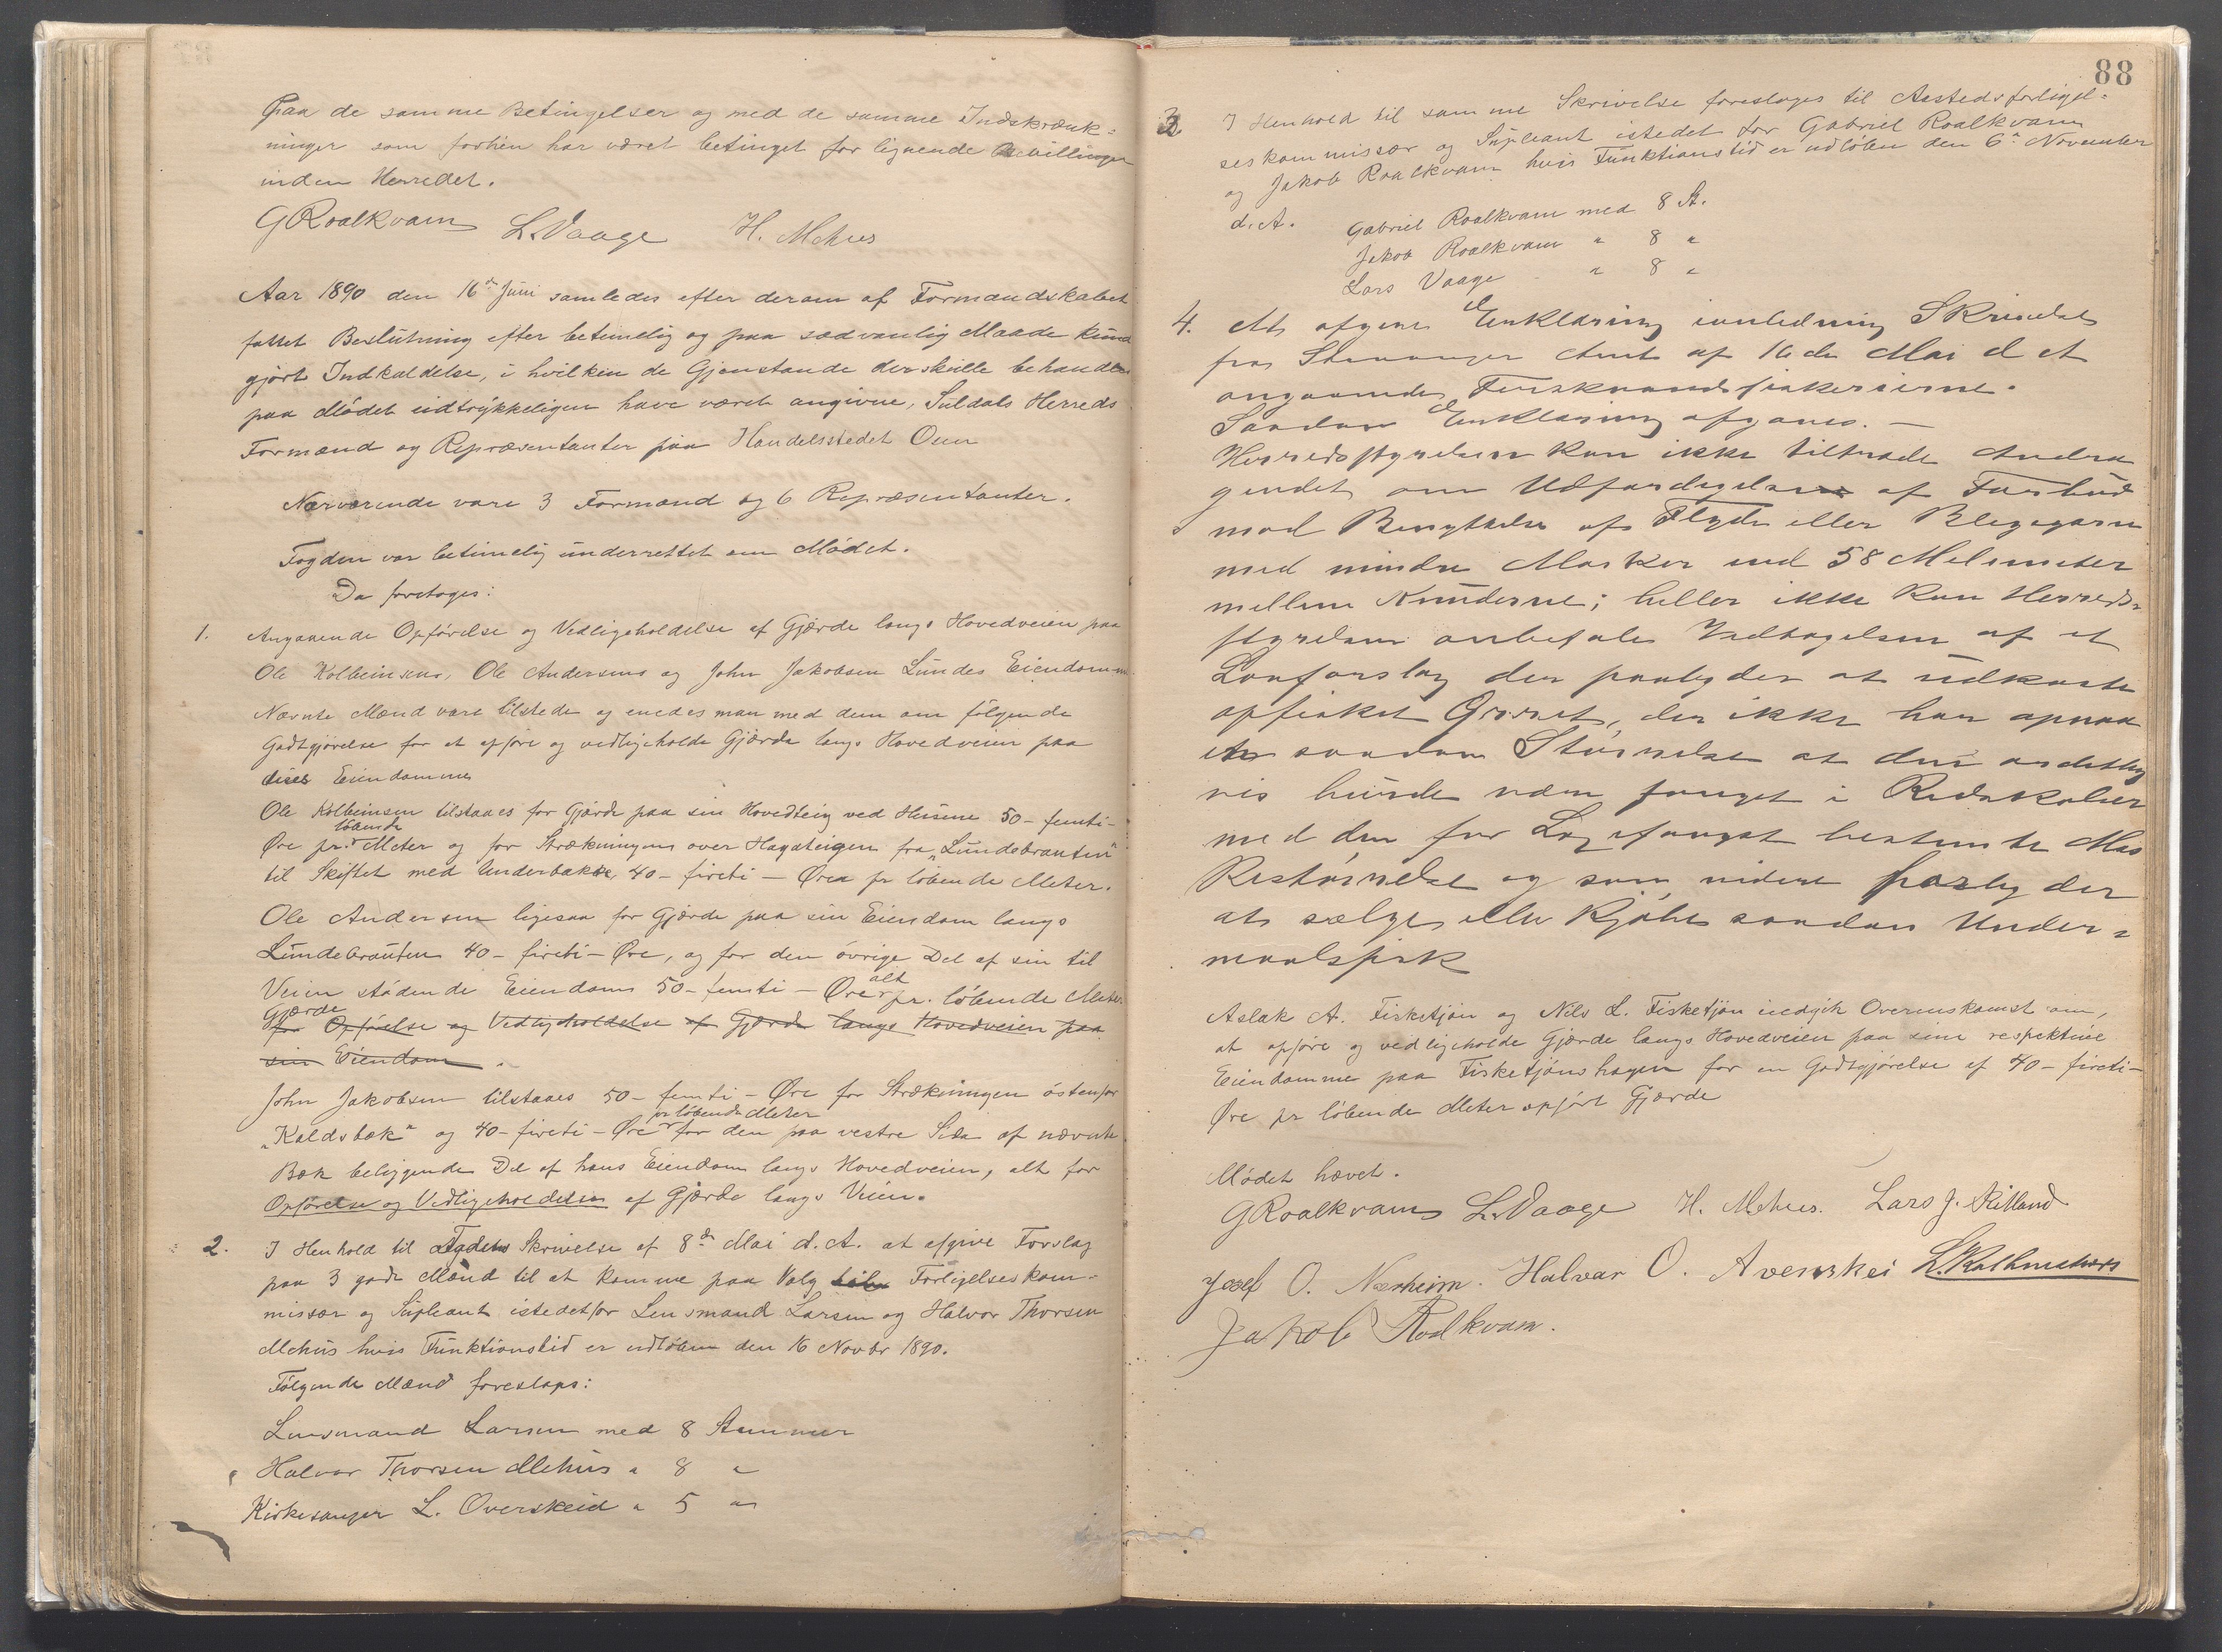 paa de samme Betingelser og med de samme Indskrænk=
ninger som forhen har været betinget for lignende Bevillinger
inden Herredet.
GRoalkvam L. Vaage H. Mehus
Aar 1890 den 16de Juni samledes efter derom af Formandskabet
fattet Beslutning efter betimelig og paa sædvanlig Maade kund
gjort Indkaldelse, i hvilken de Gjenstande der skulle behandles
paa Mødet udtrykkeligen have været angivne, Suldals Herreds
Formænd og Repræsentanter paa Handelsstedet Oen
Nærværende vare 3 Formænd og 6 Repræsentanter.
Fogden var betimelig underrettet om Mødet.
Da foretoges:
1. Angaaende Opførelse og Vedligeholdelse af Gjærde langs Hovedveien paa
Ole Kolbeinsens, Ole Andersens og John Jakobsen Lundes Eiendomme
Nævnte Mænd vare tilstede og enedes man med dem om følgende
Godtgjørelse for at opføre og vedligeholde Gjærde langs Hovedveien paa
disses Eiendomme
Ole Kolbeinsen tilstaaes for Gjærde paa sin Hovedteig ved Husene 50 - femti -
Øre pr. løbende Meter og for Strækningen over Hagateigen fra "Lundebrauten"
til Skiftet med Underbakke, 40 - firti - Øre pr løbende Meter.
Ole Andersen ligesaa for Gjærde paa sin Eiendom langs
Lundebrauten 40 - firti - Øre, og for den øvrige Del af sin til
Veien stødende Eiendom 50 - femti - Øre alt pr. løbende Meter
Gjærde
for Opførelse og Vedligeholdelse af Gjærde langs Hovedveien paa
sin Eiendom.
John Jakobsen tilstaaes 50 - femti - Øre for Strækningen østenfor
"Kaldsbæk" og 40 - firti - Øre pr løbende Meter for den paa vestre Side af nævnte
Bæk beliggende Del af hans Eiendom langs Hovedveien, alt for
Opførelse og Vedligeholdelse af Gjærde langs Veien.
2. I Henhold til Fogdens Skrivelse af 8de Mai d. A. at afgive Forslag
paa 3 gode Mænd til at komme paa Valg til Forligelseskom-
missær og Supleant istedetfor Lensmand Larsen og Halvor Thorsen
Mehus hvis Funktionstid er udløben den 16 Novbr 1890.
Følgende Mænd foreslaaes:
Lensmand Larsen med 8 Stemmer
Halvor Thorsen Mehus " 8 "
Kirkesanger L. Overskeid " 5 "
88
3. I Henhold til samme Skrivelse foreslages til Aastedsforligel=
seskommissær og Supleant istedet for Gabriel Roalkvam
og Jakob Roalkvam hvis Funktionstid er udløben den 6te November
d. A. Gabriel Roalkvam med 8 St.
Jakob Roalkvam " 8 "
Lars Vaage " 8 "
4. At afgive Erklæring i anledning Skrivelse
fra Stavanger Amt af 16de Mai d A
angaaende Ferskvandsfiskerierne.
Saadan Erklæring afgaves. —
Herredsstyrelsen kan ikke tiltræde Andra
gendet om Udfærdigelse af Forbud
mod Benyttelse af Flyde eller Blegegarn
med mindre Masker end 58 Milimeter
mellem Knuderne; heller ikke kan Herreds=
styrelsen anbefale Vedtagelsen af et
Lovforslag der paabyder at udkaste
opfisket Ørret, der ikke har opnaa
et saadan Størrelse at den
vis burde være fanget i Redskaber
med den for Laxefangst bestemte Mas
kestørrelse og som videre forbyder
at sælge eller kjøbe saadan Under=
maalsfisk
Aslak A. Fisketjøn og Nils L. Fisketjøn indgik Overenskomst om,
at opføre og vedligeholde Gjærde langs Hovedveien paa sine respektive
Eiendomme paa Fisketjønshagen for en Godtgjørelse af 40 - firti -
Øre pr løbende Meter opført Gjærde
Mødet hævet.
GRoalkvam L. Vaage H. Mehus. Lars J.
Josef O. Nærheim. Halvar O. Avenskei
Jakob Roalkvam.